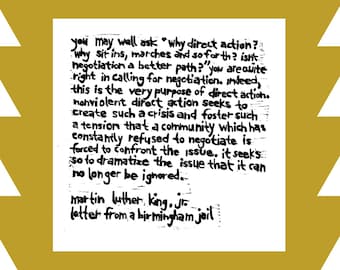 you may well ask "why direct action?
why sit ins, marches and so forth? isn't
negotiation a better path?" you are quite
right in calling for negotiation. indeed,
this is the very purpose of direct action.
nonviolent direct action seeks to
create such a crisis and foster such
a tension that a community which has
constantly refused to negotiate is
forced to confront the issue. it seeks
so to dramatize the issue that it can
no longer be ignored.
martin luther king, jr.
letter from a birmingham jail